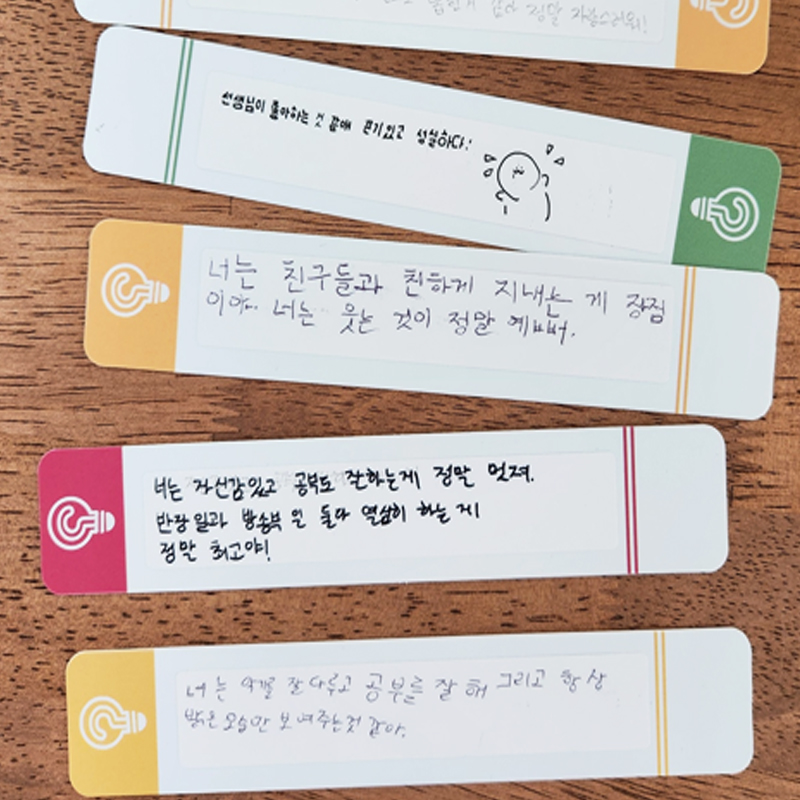 정말 자랑스러워!
선생님이 좋아하는 것 끝에 끈기있고 성실하다!
너는 친구들과 친하게 지내는 게 장점
이야. 너는 웃는 것이 정말 예뻐.
너는 자신감있고 공부도 잘하는게 정말 멋져.
반장일과 방송부 일 둘다 열심히 하는 게
정말 최고야!
너는 악기를 잘 다루고 공부를 잘 해 그리고 항상
밝은 모습만 보여주는것 같아.